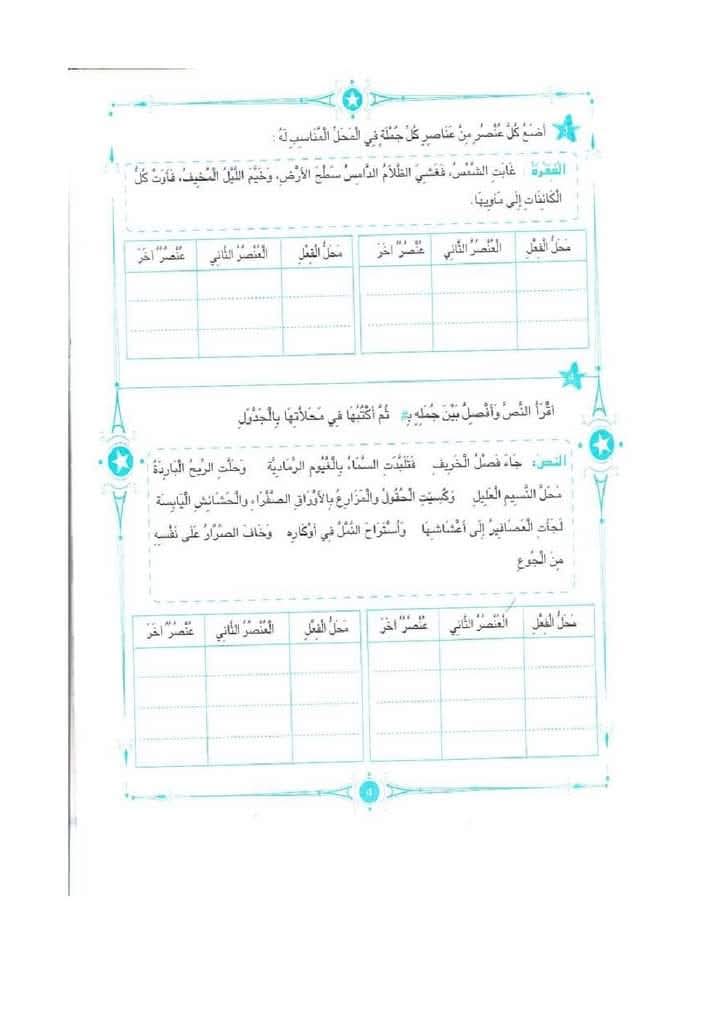 أَضَعُ كُلَّ عُنْصُرٍ مِنْ عَنَاصِرِ كُلِّ جُمْلَةٍ فِي الْمَحَلِّ الْمُنَاسِبِ لَهُ :
الْفَقْرَةُ : غَابَتِ الشَّمْسُ، فَغَشِيَ الظَّلَامُ الدَّامِسُ سَطْحَ الْأَرْضِ، وَخَيَّمَ اللَّيْلُ الْمُخِيفُ، فَأَوَتْ كُلُّ
الْكَائِنَاتِ إِلَى مَآوِيهَا.
مَحَلُّ الْفِعْلِ الْعُنْصُرُ الثَّانِي عُنْصُرٌ آخَرَ مَحَلُّ الْفِعْلِ الْعُنْصُرُ الثَّانِي عُنْصُرٌ آخَرَ
أَقْرَأُ النَّصَّ وَأَفْصِلُ بَيْنَ جُمَلِهِ بِـ# ثُمَّ أَكْتُبُهَا فِي مَحَلَّاتِهَا بِالْجَدْوَلِ
النص: جَاءَ فَصْلُ الْخَرِيفِ فَتَلَبَّدَتِ السَّمَاءُ بِالْغُيُومِ الرَّمَادِيَّةِ وَحَلَّتِ الرِّيحُ الْبَارِدَةُ
مَحَلَّ النَّسِيمِ الْعَلِيلِ وَكُسِيَتِ الْحُقُولُ وَالْمَزَارِعُ بِالْأَوْرَاقِ الصَّفْرَاءِ وَالْحَشَائِشِ الْيَابِسَةِ
لَجَأَتِ الْعَصَافِيرُ إِلَى أَعْشَاشِهَا وَاسْتَرَاحَ النَّمْلُ فِي أَوْكَارِهِ وَخَافَ الصَّرَّارُ عَلَى نَفْسِهِ
مِنَ الْجُوعِ
مَحَلُّ الْفِعْلِ الْعُنْصُرُ الثَّانِي عُنْصُرٌ آخَرَ مَحَلُّ الْفِعْلِ الْعُنْصُرُ الثَّانِي عُنْصُرٌ آخَرَ